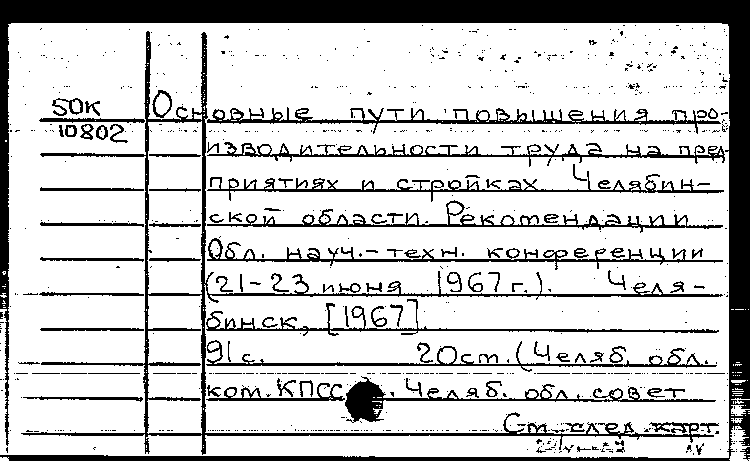 50К
10802
Основные пути повышения про-
изводительности труда на пред-
приятиях и стройках Челябин-
ской области. Рекомендации
Обл. науч.-техн. конференции
(21-23 июня 1967 г.). Челя-
бинск, [1967].
91 с. 20 см. (Челяб. обл.
ком. КПСС. Челяб. обл. совет
См. след. карт.